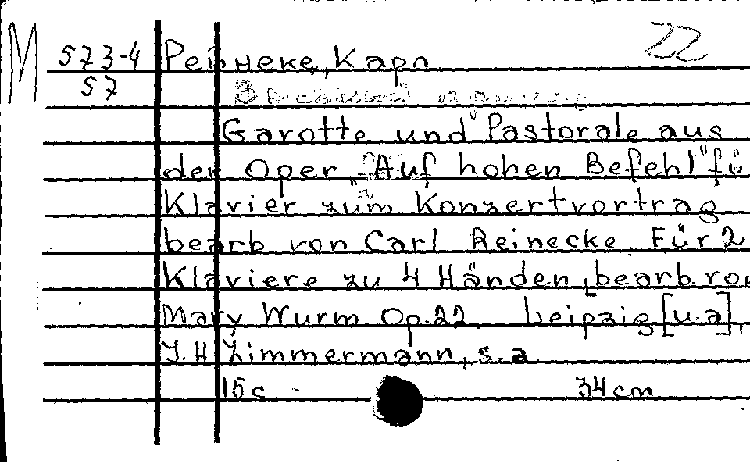 M 573-4 Рейнеке, Карл 22
57
Gavotte und "Pastorale aus
der Oper "Auf hohen Befehl" fü
Klavier zum Konzertvortrag
bearb von Carl Reinecke Für 2
Klaviere zu 4 Händen, bearb. von
Mary Wurm Op. 22. Leipzig [u. a],
J. H. Zimmermann, s. a.
15 c 34 cm